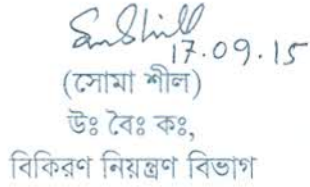 17.09.15
(সোমা শীল)
উঃ বৈঃ কঃ,
বিকিরণ নিয়ন্ত্রণ বিভাগ